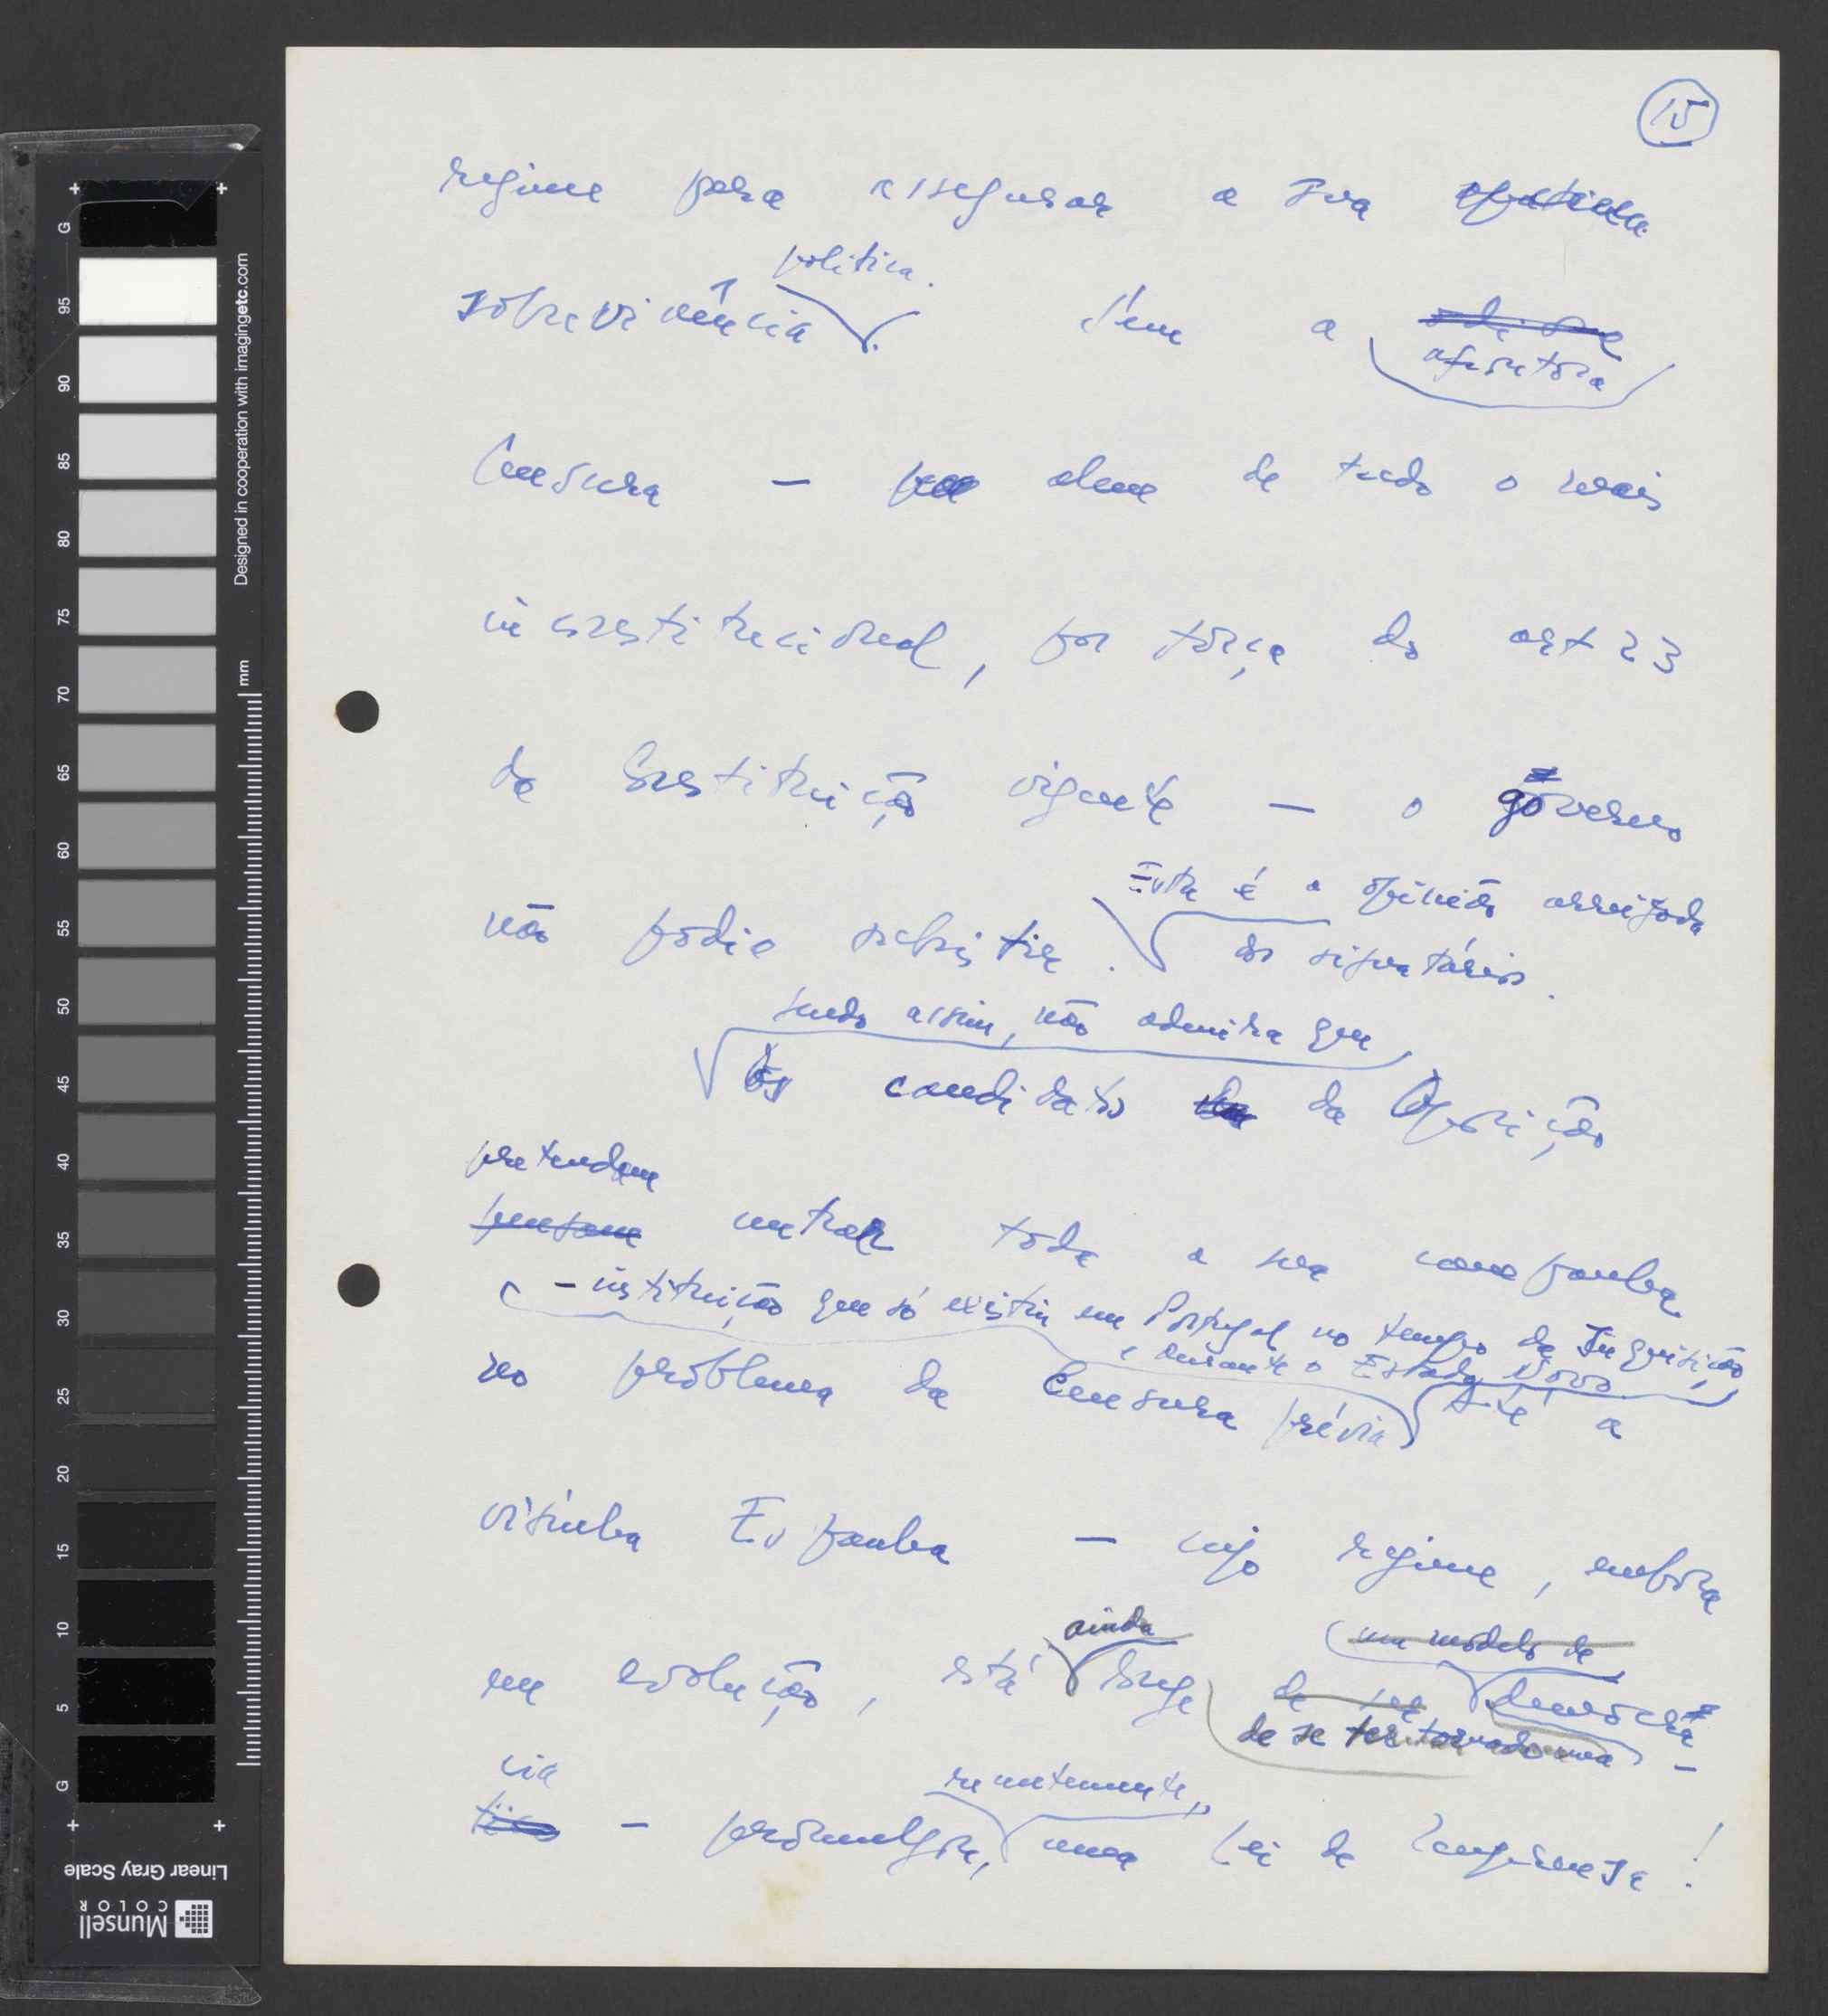 15
regime para assegurar a sua
política.
sobrevivência. Sem a
Censura — além de tudo o mais
inconstitucional, por fôrça do art 23
da Constituição vigente — o govêrno
Esta é a opinião arreigada
não podia subsistir. dos signatários.
Sendo assim, não admira que
os candidatos da Oposição
pretendem
pensam centrar toda a sua campanha
– instituição que só existiu em Portugal no tempo da Inquisição
e durante o Estado Novo
no problema da Censura prévia Até a
visinha Espanha — cujo regime, embora
ainda um modelo de
em evolução, está longe de ser democra-
de se ter tornado uma
cia
recentemente,
– promulgou, uma Lei de Imprensa!
G 95 90 85 80 75 70 65 60 55 50 45 40 35 30 25 20 15 10 5 G
Designed in cooperation with imagingetc.com
mm
Linear Gray Scale
Munsell
COLOR